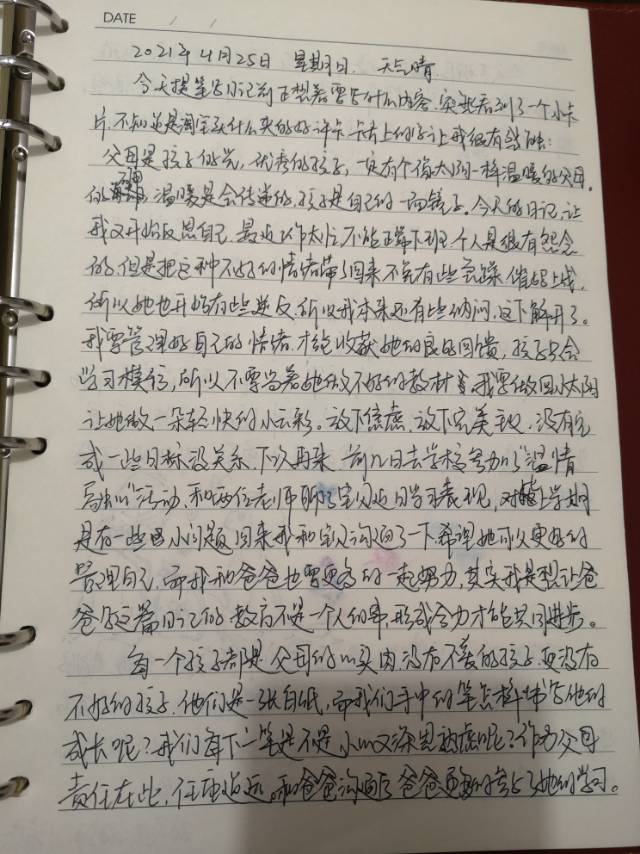 DATE / /
2021年4月25日 星期日 天气晴
今天提笔写日记前正想着要写什么内容,突然看到了一个小卡
片,不知道是淘宝买什么来的好评卡 卡上的字让我很有
父母是孩子的光,优秀的孩子,一定有个像太阳一样温暖的父母。
的 温暖是会传递的,孩子是自己的一面镜子。今天的日记,让
我又开始反思自己,最近工作太忙不能正常下班 个人是很有怨念
的,但是把这种不好的情绪带了回来不免有些急躁
所以她也开始有些逆反,所以我本来还有些纳闷,这下解开了。
我要管理好自己的情绪,才能收获她的良好回馈,孩子只会
学习模仿,所以不要当着她做不好的教材,我要做回小太阳
让她做一朵轻快的小云彩。放下焦虑,放下完美主义,没有完
成一些目标没关系,下次再来。前几日去学校参加了“温情
”活动,和两位老师聊了宝贝近日学习表现,对 上学期
是有一些小问题,回来我和宝贝沟通了一下,希望她可以更好的
管理自己,而我和爸爸也要更多的一起努力,其实我是想让爸
爸写这篇日记的 教育不是一个人的事,形成合力才能共同进步。
每一个孩子都是父母的心头肉,没有不爱的孩子,更没有
不好的孩子,他们是一张白纸,而我们手中的笔怎样描写他的
成长呢?我们每下一笔是不是小心又深思熟虑呢?作为父母
责任在此,任重道远。和爸爸沟通后 爸爸 她的学习。